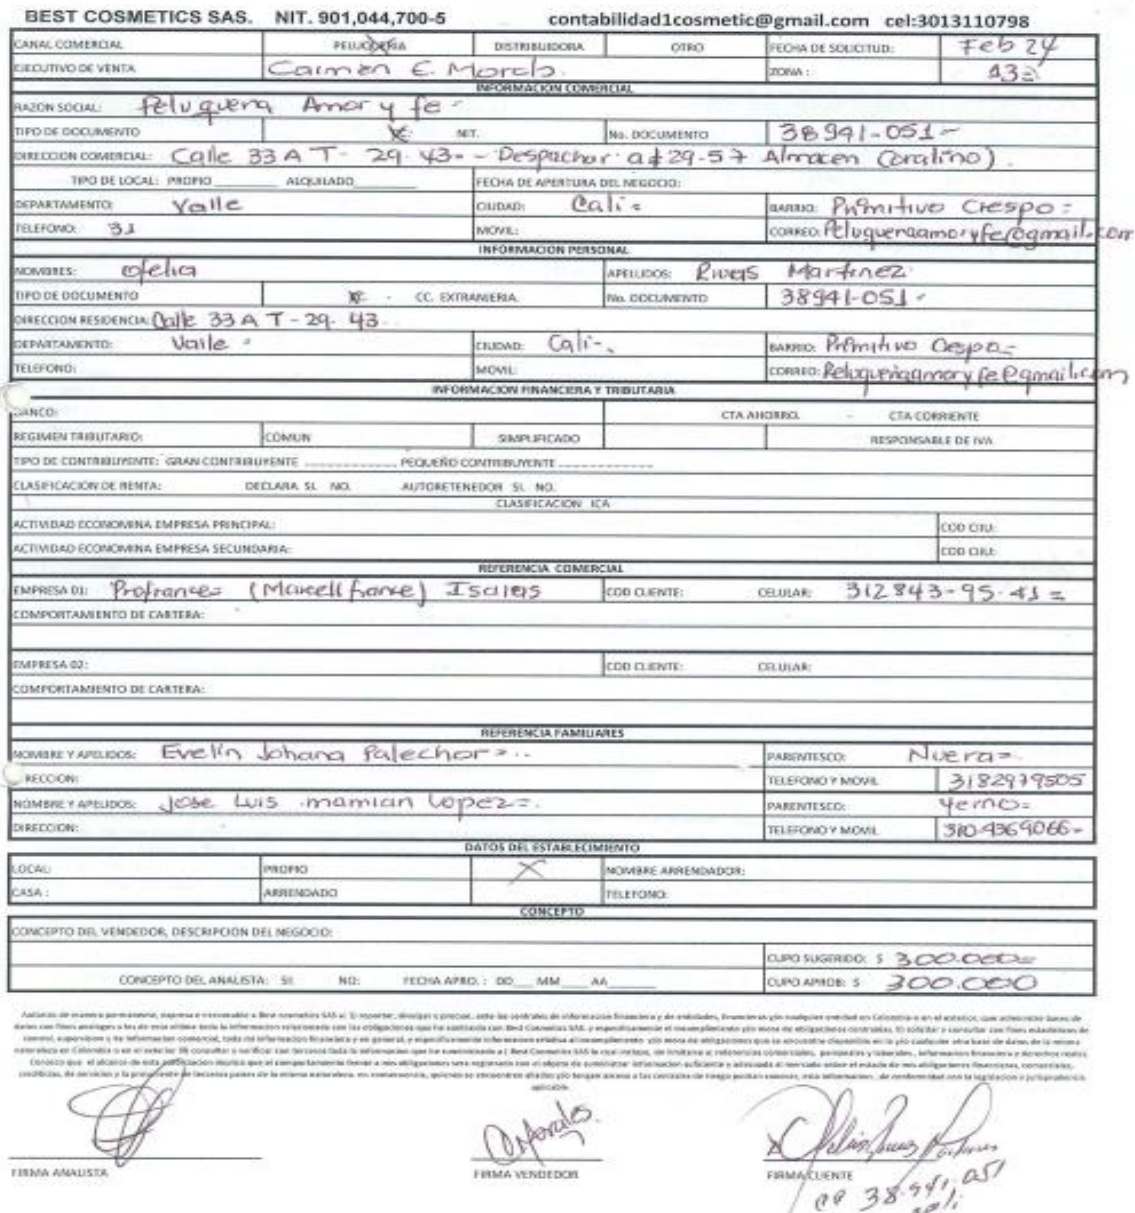 BEST COSMETICS SAS. NIT. 901,044,700-5 contabilidad1cosmetic@gmail.com cel:3013110798
CANAL COMERCIAL PELUQUERIA DISTRIBUIDORA OTRO FECHA DE SOLICITUD: Feb 24
EJECUTIVO DE VENTA Carmen E. Morals. ZONA : 13=
INFORMACION COMERCIAL
RAZON SOCIAL: Peluqueria Amor y fe -
TIPO DE DOCUMENTO X NIT. No. DOCUMENTO 38941-051-
DIRECCION COMERCIAL: Calle 33 A T - 29. 43 - - Despachar a # 29-57 Almacen Coralino).
TIPO DE LOCAL: PROPIO ________ ALQUILADO ________ FECHA DE APERTURA DEL NEGOCIO:
DEPARTAMENTO: Valle CIUDAD: Cali = BARRIO: Primitivo Crespo =
TELEFONO: 31 MOVIL: CORREO: Peluqueriaamoryfe@gmail.com
INFORMACION PERSONAL
NOMBRES: Ofelia APELLIDOS: Rivas Martinez
TIPO DE DOCUMENTO X - CC. EXTRANJERIA. No. DOCUMENTO 38941-051-
DIRECCION RESIDENCIA: Calle 33 A T - 29- 43-
DEPARTAMENTO: Valle - CIUDAD: Cali-. BARRIO: Primitivo Crespo-
TELEFONO: MOVIL: CORREO: Peluqueriaamoryfe@gmail.com
INFORMACION FINANCIERA Y TRIBUTARIA
BANCO: CTA AHORRO. - CTA CORRIENTE
REGIMEN TRIBUTARIO: COMUN SIMPLIFICADO RESPONSABLE DE IVA
TIPO DE CONTRIBUYENTE: GRAN CONTRIBUYENTE ____________ PEQUEÑO CONTRIBUYENTE ____________
CLASIFICACION DE RENTA: DECLARA SI. NO. AUTORETENEDOR SI. NO.
CLASIFICACION ICA
ACTIVIDAD ECONOMINA EMPRESA PRINCIPAL: COD CIIU:
ACTIVIDAD ECONOMINA EMPRESA SECUNDARIA: COD CIIU:
REFERENCIA COMERCIAL
EMPRESA 01: Profrance= (Marcell france) Isaias COD CLIENTE: CELULAR: 312843-95-41=
COMPORTAMIENTO DE CARTERA:
EMPRESA 02: COD CLIENTE: CELULAR:
COMPORTAMIENTO DE CARTERA:
REFERENCIA FAMILIARES
NOMBRE Y APELIDOS: Evelin Johana Palechor=.. PARENTESCO: Nuera=
DIRECCION: TELEFONO Y MOVIL 3182979505
NOMBRE Y APELIDOS: Jose Luis mamian Lopez=. PARENTESCO: Yerno=
DIRECCION: TELEFONO Y MOVIL 310-4369066-
DATOS DEL ESTABLECIMIENTO
LOCAL: PROPIO X NOMBRE ARRENDADOR:
CASA : ARRENDADO TELEFONO:
CONCEPTO
CONCEPTO DEL VENDEDOR, DESCRIPCION DEL NEGOCIO:
CUPO SUGERIDO: $ 300.000=
CONCEPTO DEL ANALISTA: SI: NO: FECHA APRO. : DD___ MM___ AA___ CUPO APROB: $ 300.000
FIRMA ANALISTA FIRMA VENDEDOR FIRMA CLIENTE
CC 38.941,051
Cali